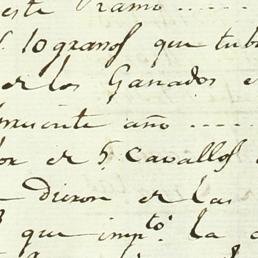 este Ramo .....
10 granos que tub
de los Ganados e
presente año .....
por de 5 Cavallos
dieron de las
que imp.to la